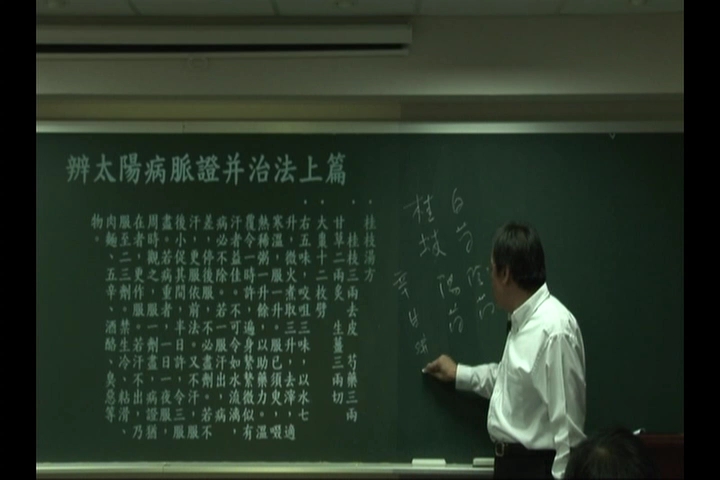 辨太陽病脈證并治法上篇
桂枝湯方
桂枝三兩去皮 芍藥三兩
甘草二兩炙 生薑三兩切
大棗十二枚劈
右五味，㕮咀三味，以水七
升，微火煮取三升，去滓，適
寒溫，服一升。服已須臾，啜
熱稀粥一升餘，以助藥力，溫
覆令一時許，遍身縶縶微似有
汗者益佳，不可令如水流漓，
病必不除。若一服汗出，病
差，停後服，不必盡劑。若不
汗，更服依前法，又不汗，服
後小促其間，半日許，令三服
盡。若病重者，一日一夜服，
周時觀之，服一劑盡，病證猶
在者，更作服。若汗不出，乃
服至二三劑。禁生冷、粘滑、
肉麵、五辛、酒酪、臭惡等
物。
白芍
桂枝
辛甘